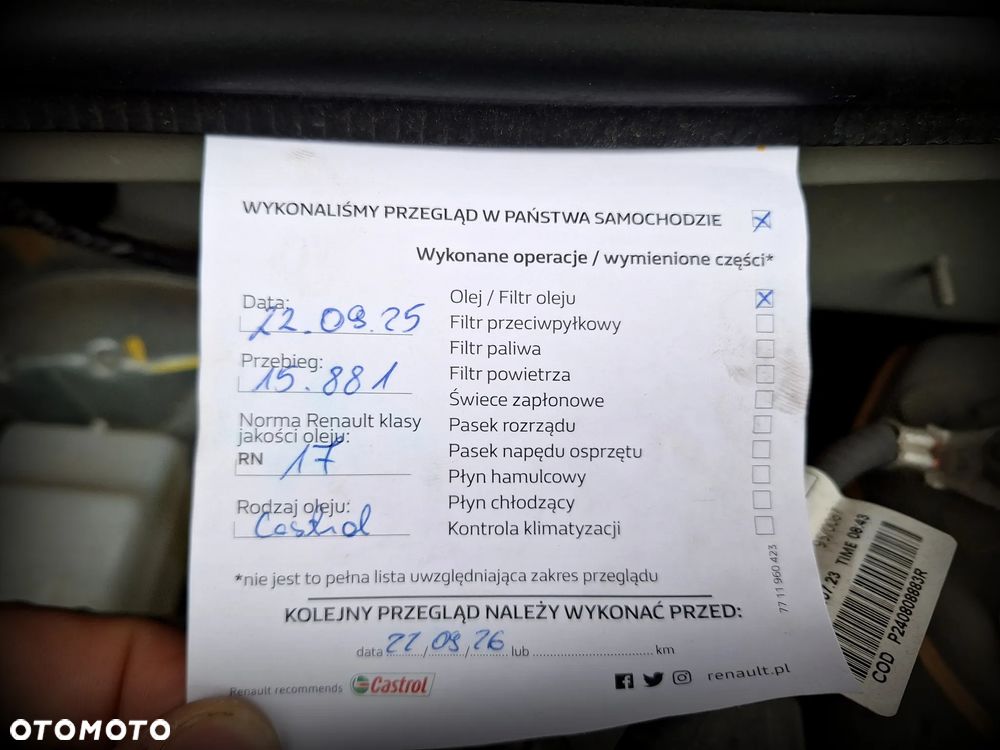 WYKONALIŚMY PRZEGLĄD W PAŃSTWA SAMOCHODZIE
Wykonane operacje / wymienione części*
Data: 22.09.25
Przebieg: 15.881
Norma Renault klasy
jakości oleju:
RN 17
Rodzaj oleju:
Castrol
Olej / Filtr oleju
Filtr przeciwpyłkowy
Filtr paliwa
Filtr powietrza
Świece zapłonowe
Pasek rozrządu
Pasek napędu osprzętu
Płyn hamulcowy
Płyn chłodzący
Kontrola klimatyzacji
77 11 960 423
*nie jest to pełna lista uwzględniająca zakres przeglądu
KOLEJNY PRZEGLĄD NALEŻY WYKONAĆ PRZED:
data 22/09/26 lub ........ km
Renault recommends Castrol
renault.pl
TIME 08:43
COD P240808883R
OTOMOTO